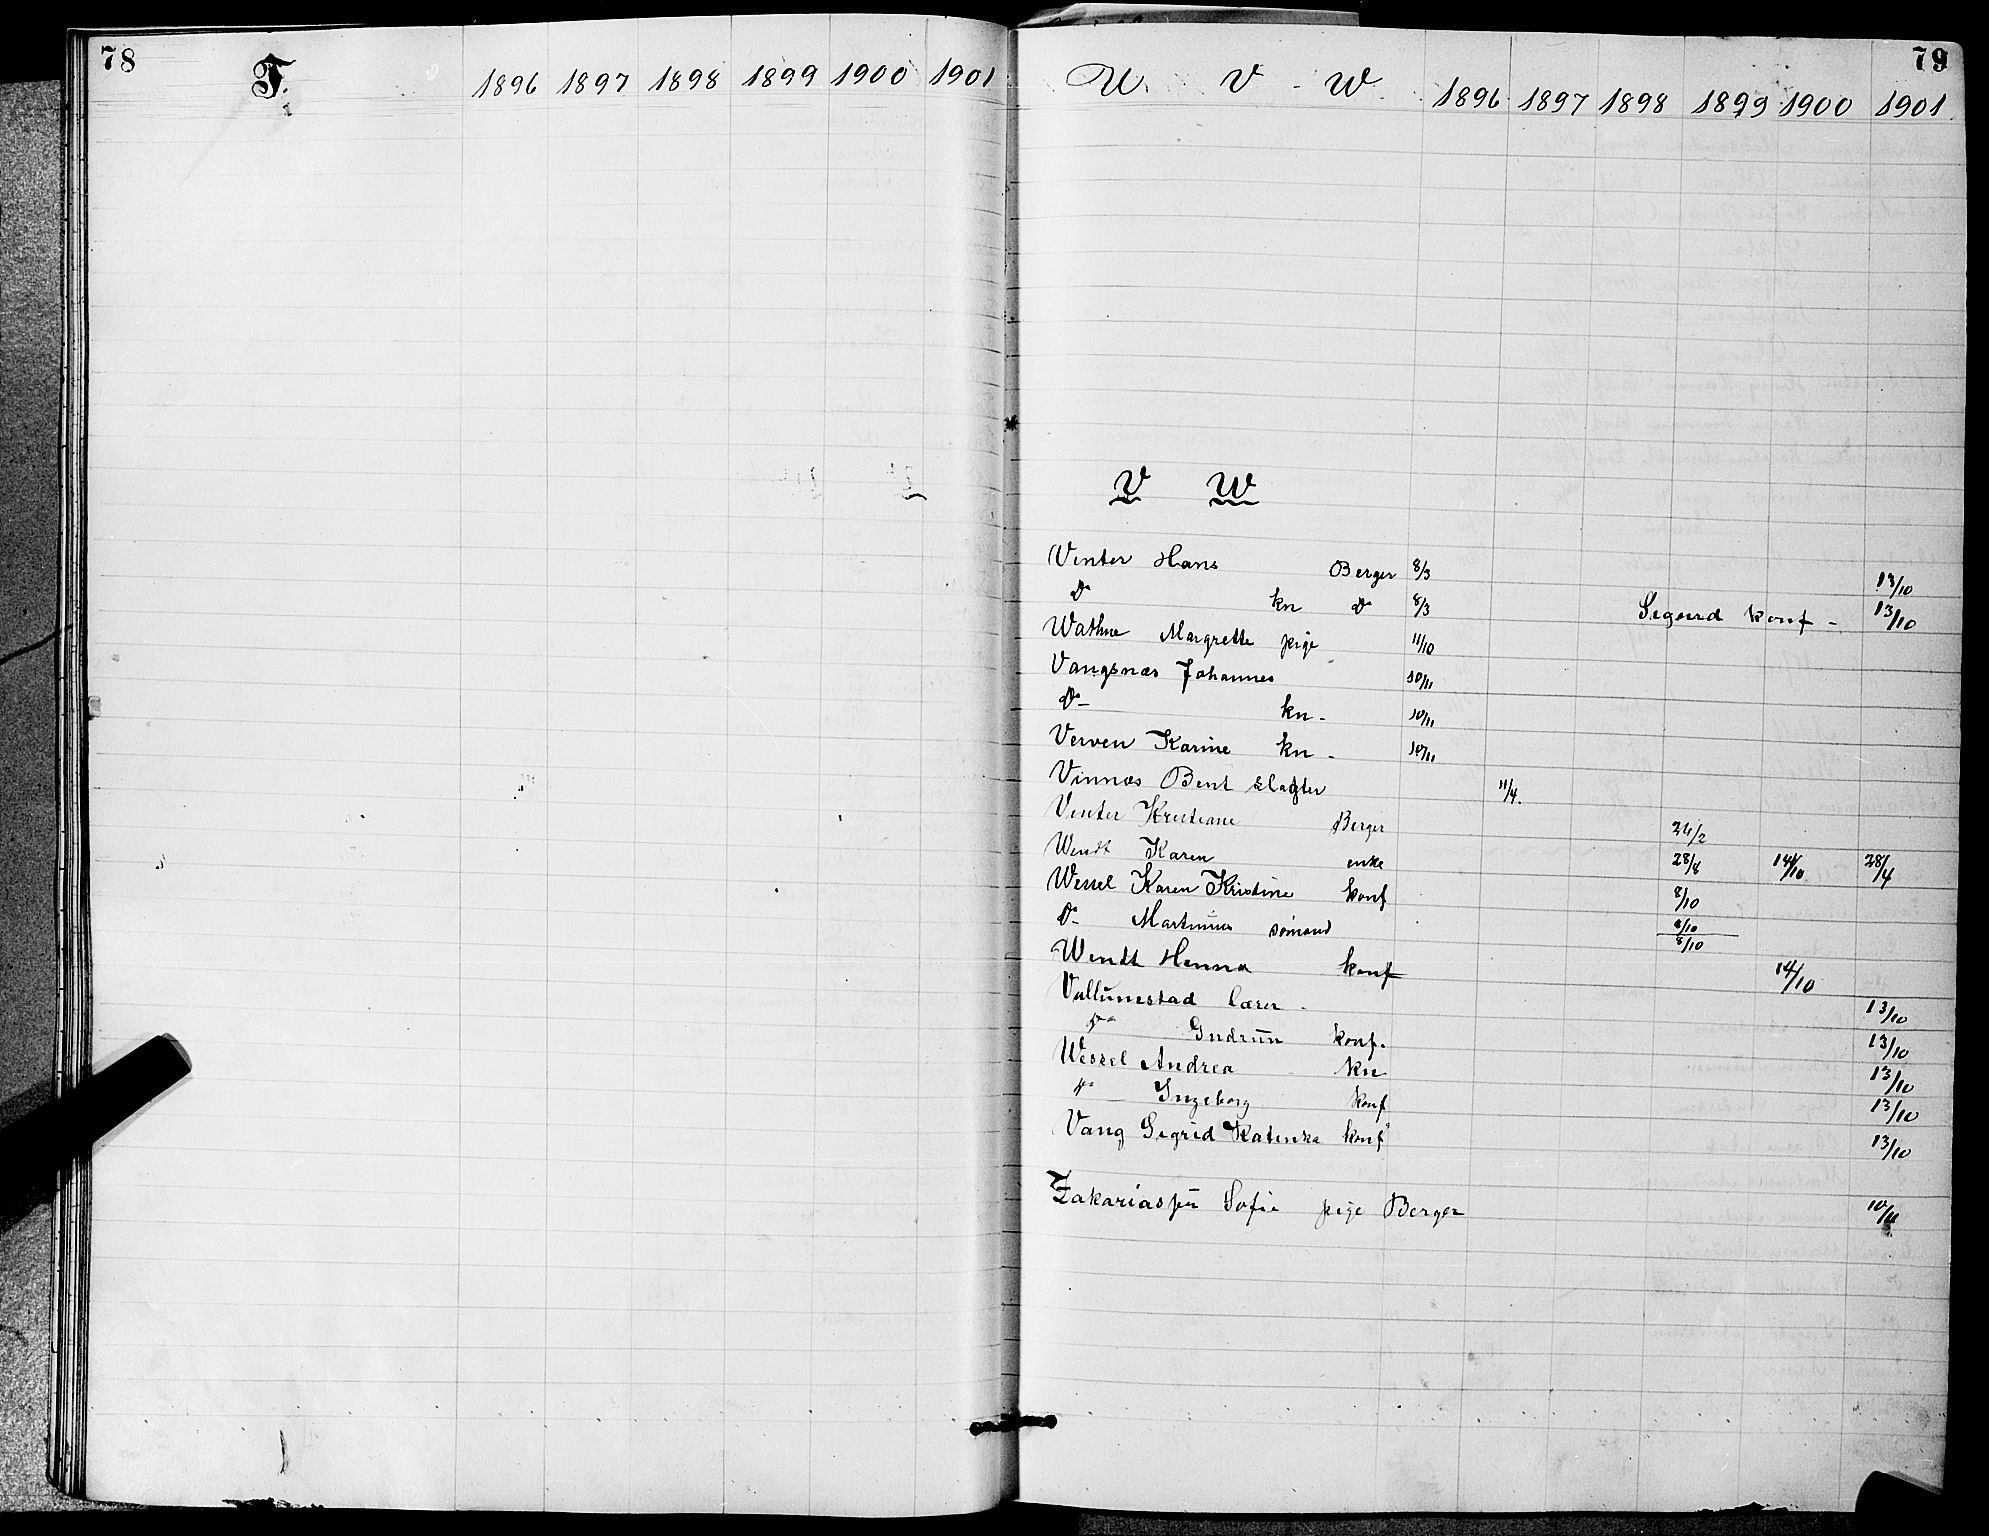 78
T.
1896 1897 1898 1899 1900 1901
79
U. V - W
1896 1897 1898 1899 1900 1901
V W
Venter Hans Berger 8/3 13/10
Do kn Do 8/3 Sigurd konf - 13/10
Wathne Margrette pige 11/10
Vangsnæs Johannes 10/11
Do - kn - 10/11
Verven Karine kn - 10/11
Vinnæs Bent slagter 11/4.
Venter Kristiane Berger 24/2
Wendt Karen enke 28/8 14/10 28/4
Wessel Karen Kristine konf 8/10
Do - Martinus sømand 8/10
8/10
Wendt Henna konf 14/10
Vallumestad lærer - 13/10
Do Gudrun konf. 13/10
Wessel Andrea kn 13/10
Do Ingeborg konf 13/10
Vang Sigrid Katinka konf 13/10
Zakariasen Sofie pige Berger 10/11